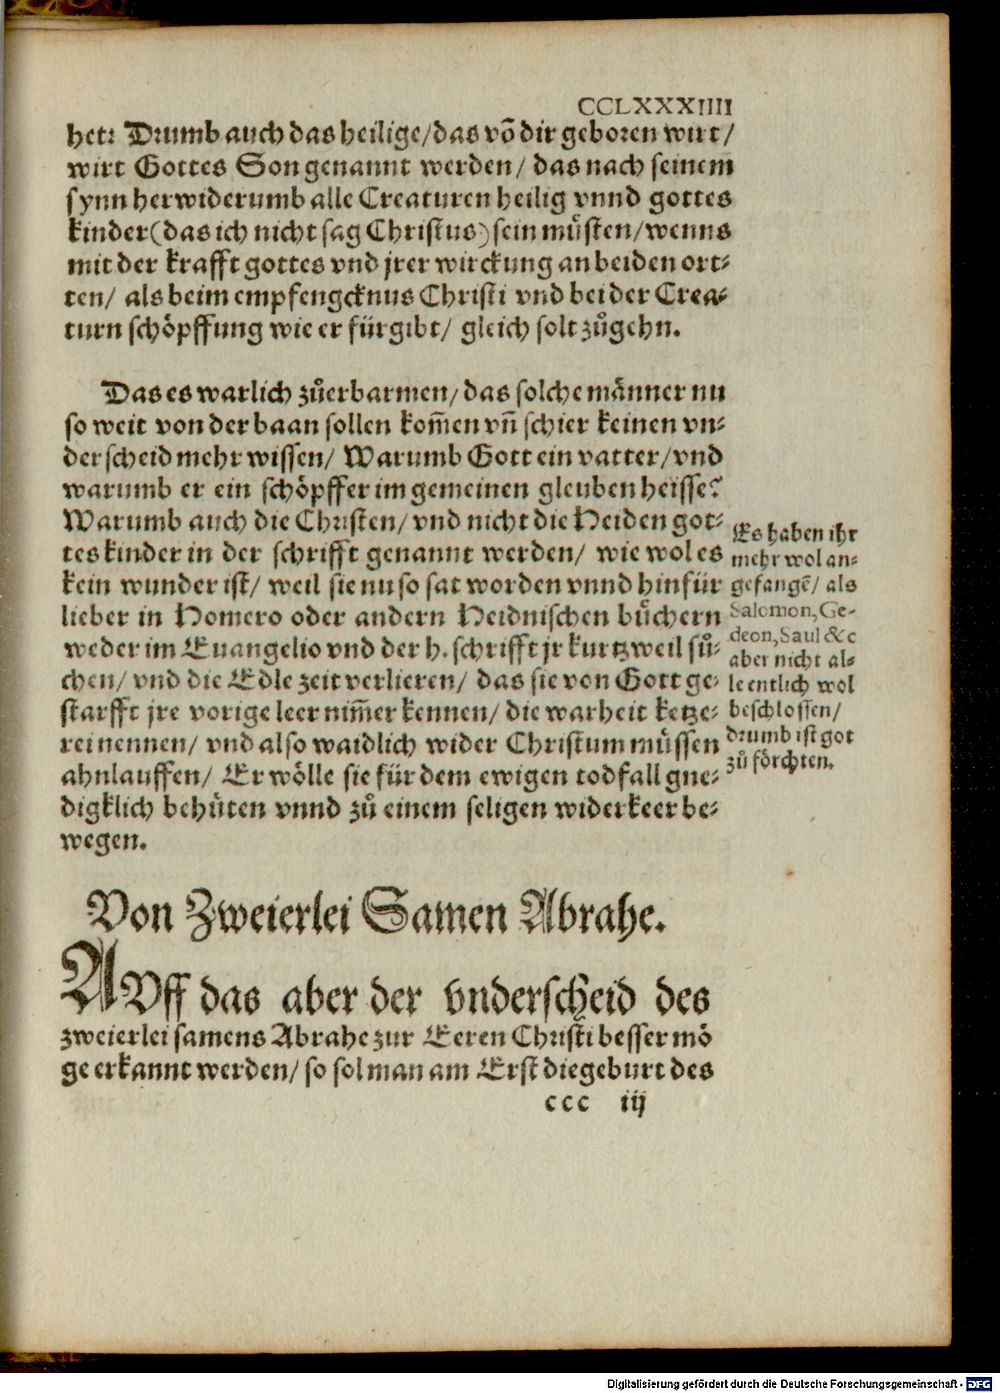 CCLXXXIIII
het: Drumb auch das heilige/das võ dir geboren wirt/
wirt Gottes Son genannt werden/ das nach seinem
synn herwiderumb alle Creaturen heilig vnnd gottes
kinder(das ich nicht sag Christus) sein muͤsten/wenns
mit der krafft gottes vnd jrer wirckung an beiden ort⸗
ten/ als beim empfengcknus Christi vnd bei der Crea⸗
turn schoͤpffung wie er fuͤrgibt/ gleich solt zuͦgehn.
Das es warlich zuͦerbarmen/das solche maͤnner nu
so weit von der baan sollen kom̃en vñ schier keinen vn⸗
derscheid mehr wissen/ Warumb Gott ein vatter/vnd
warumb er ein schoͤpffer im gemeinen gleuben heisse?
Warumb auch die Christen/ vnd nicht die Heiden got⸗
tes kinder in der schrifft genannt werden/ wie wol es
kein wunder ist/ weil sie nu so sat worden vnnd hinfuͤr
lieber in Homero oder andern Heidnischen buͤchern
weder im Euangelio vnd der h. schrifft jr kurtzweil suͦ⸗
chen/ vnd die Edle zeit verlieren/ das sie von Gott ge⸗
starfft jre vorige leer nim̃er kennen/ die warheit ketze⸗
rei nennen/ vnd also waidlich wider Christum muͤssen
ahnlauffen/ Er woͤlle sie fuͤr dem ewigen todfall gne⸗
digklich behuͤten vnnd zuͦ einem seligen widerkeer be⸗
wegen.
Es haben ihr
mehr wol an⸗
gefangẽ/ als
Salomon, Ge-
deon, Saul &c
aber nicht al⸗
le entlich wol
beschlossen/
drumb ist got
zuͦ foͤrchten.
Von Zweierlei Samen Abrahe.
AVff das aber der vnderscheid des
zweierlei samens Abrahe zur Eeren Christi besser moͤ
ge erkannt werden/ so sol man am Erst die geburt des
ccc iij
Digitalisierung gefördert durch die Deutsche Forschungsgemeinschaft - DFG